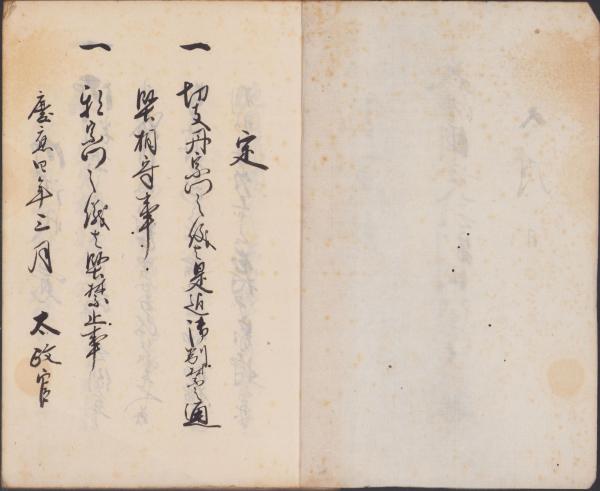 定
一 切支丹宗門之儀者是迄御制禁之通
堅相守事
一 邪宗門之儀者堅禁止事
慶應四年三月 太政官